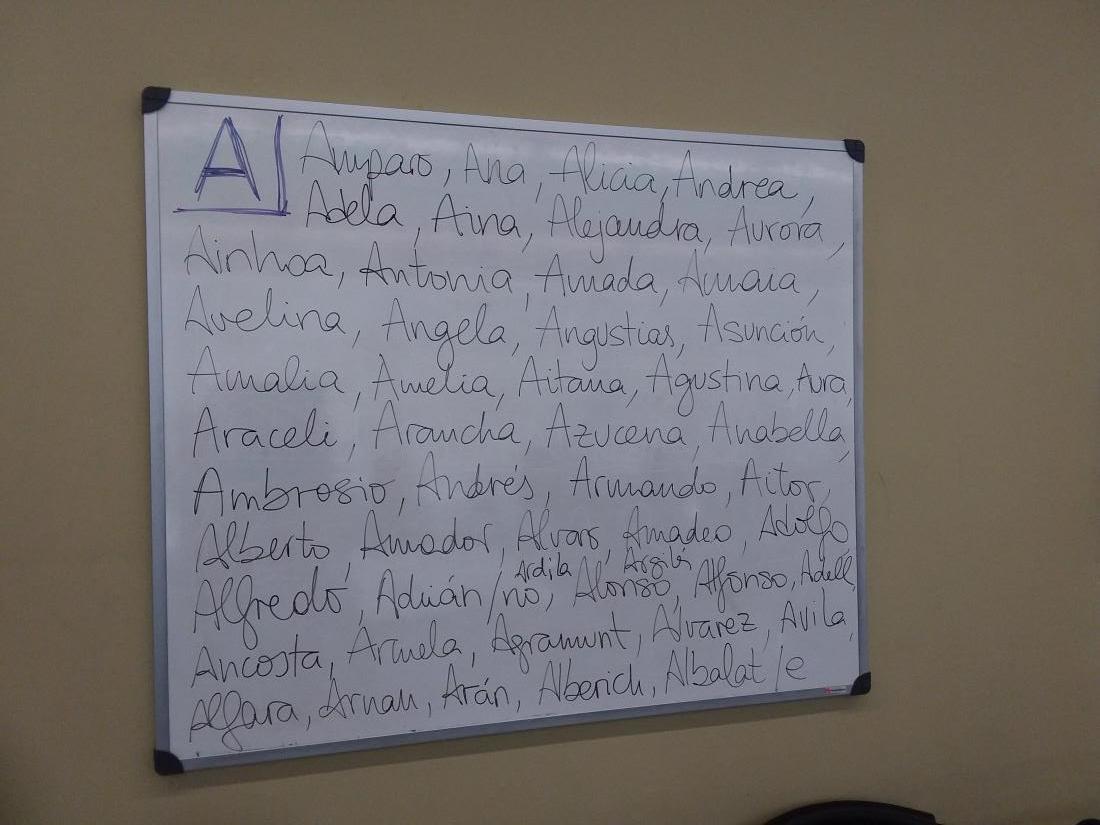 A
Amparo, Ana, Alicia, Andrea,
Adela, Aina, Alejandra, Aurora,
Ainhoa, Antonia, Amada, Amaia,
Avelina, Angela, Angustias, Asunción,
Amalia, Amelia, Aitana, Agustina, Aura,
Araceli, Arancha, Azucena, Anabella,
Ambrosio, Andrés, Armando, Aitor,
Alberto, Amador, Alvaro, Amadeo, Adolfo
Ardila, Argilés
Alfredo, Adrián/no, Alonso, Alfonso, Adell,
Ancosta, Armela, Agramunt, Alvarez, Avila,
Alfara, Arnau, Arán, Alberich, Albalat/e